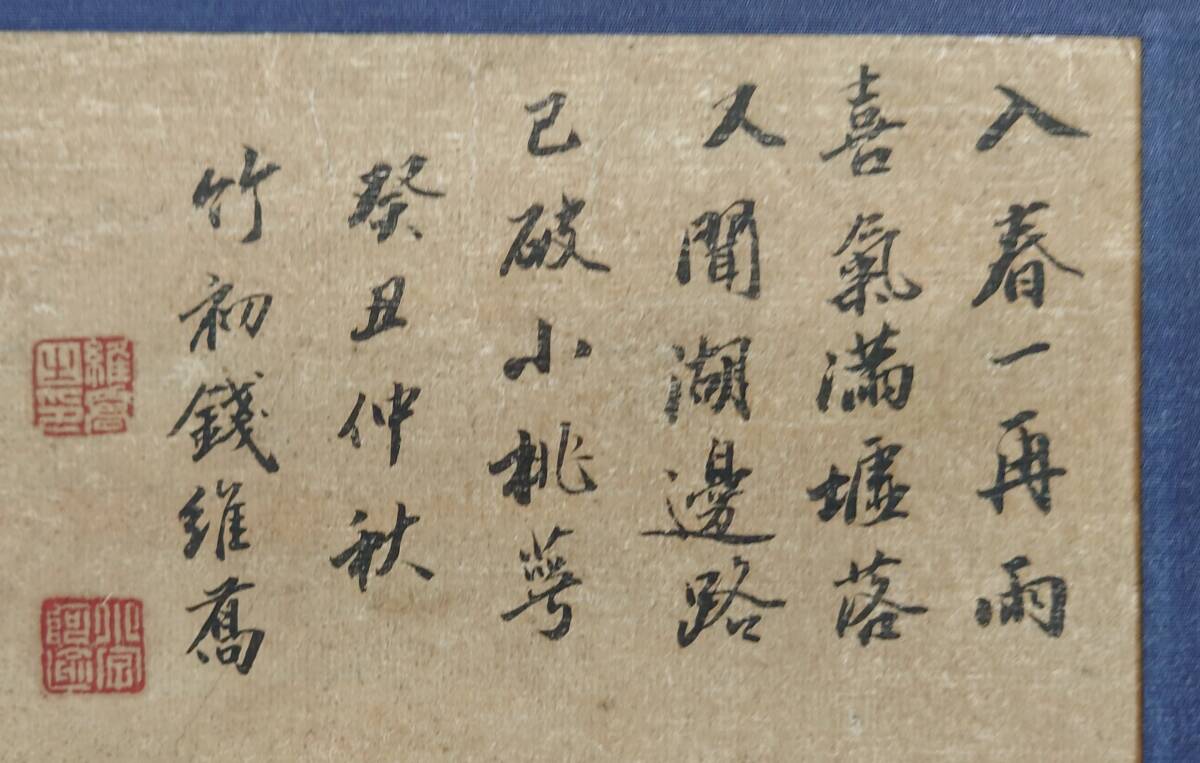 入春一再雨
喜氣滿墟落
又聞湖邊路
已破小桃萼
癸丑仲秋
竹初錢維喬
維喬之印
小字阿逾